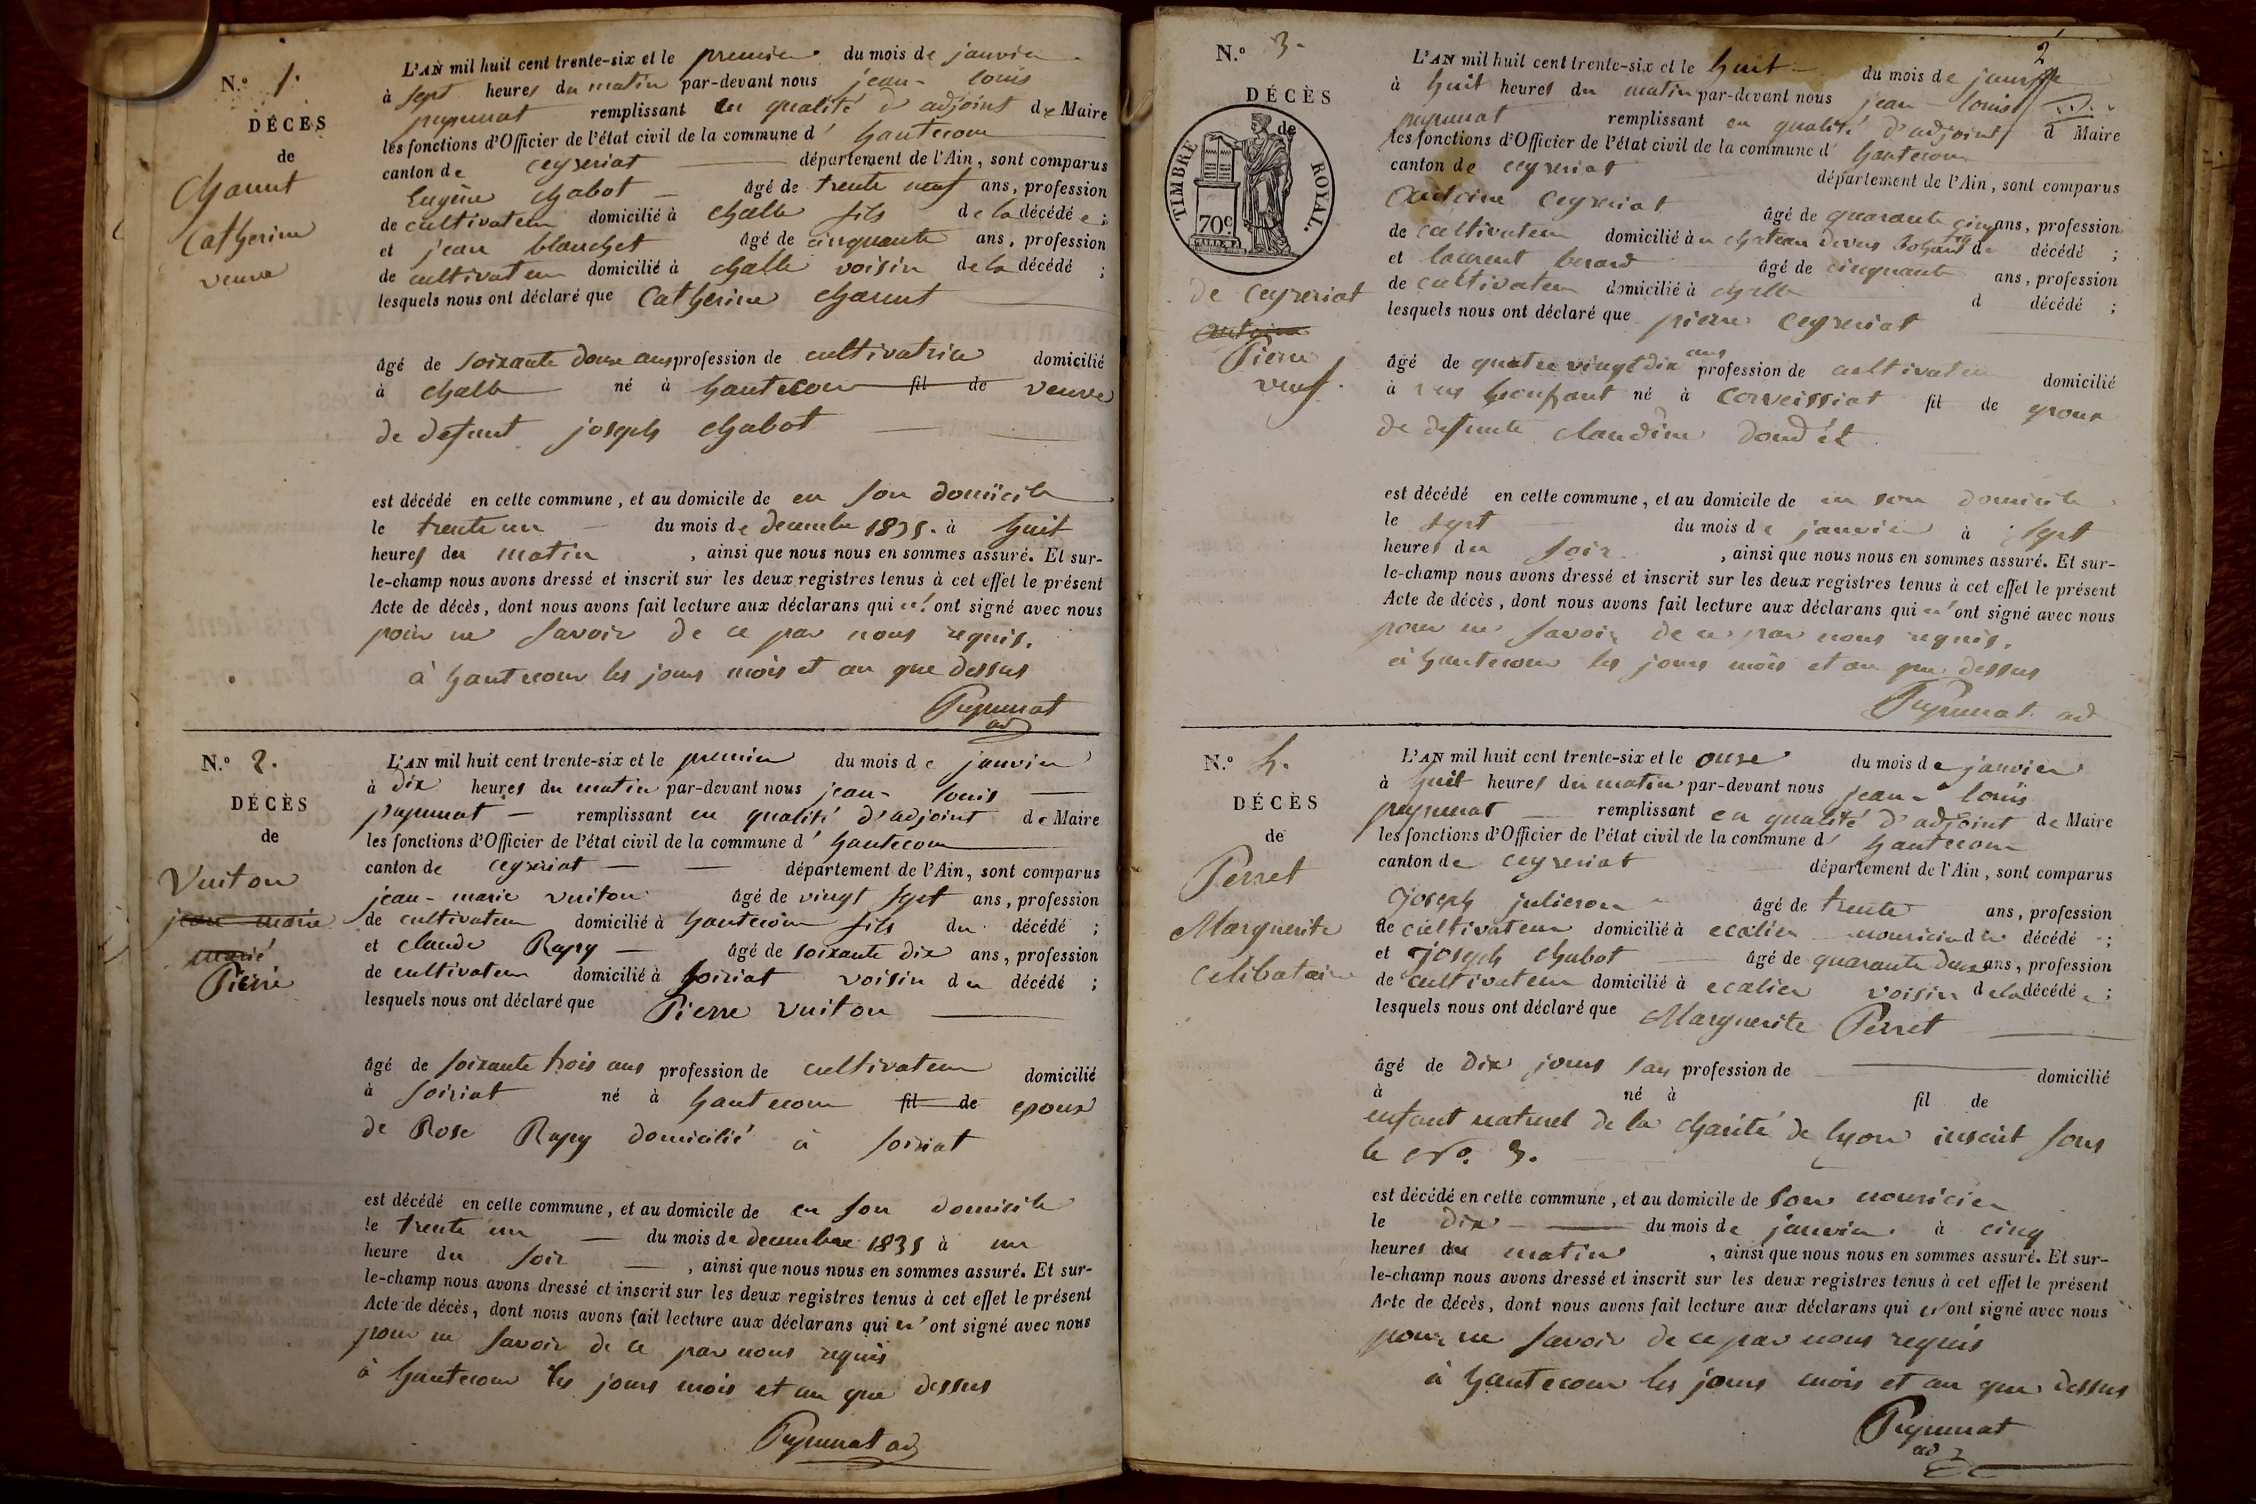 N.º 1.
DÉCÈS
de
Charnut
Catherine
veuve
L'AN mil huit cent trente-six et le premier du mois de janvier
à sept heures du matin par-devant nous jean-louis
remplissant en qualité d'adjoint de Maire
les fonctions d'Officier de l'état civil de la commune d'hautecour
canton de ceyzeriat département de l'Ain, sont comparus
Eugène chabot âgé de trente neuf ans, profession
de cultivateur domicilié à challe fils de la décédée ;
et jean blanchet âgé de cinquante ans, profession
de cultivateur domicilié à challe voisin de la décédé ;
lesquels nous ont déclaré que Catherine
âgé de soixante douze ans profession de cultivatrice domicilié
à challe né à hautecour fil de veuve
de defunt joseph chabot
est décédé en cette commune, et au domicile de en son domicile
le trente un du mois de decembre 1835. à huit
heures du matin, ainsi que nous nous en sommes assuré. Et sur-
le-champ nous avons dressé et inscrit sur les deux registres tenus à cet effet le présent
Acte de décès, dont nous avons fait lecture aux déclarans qui n'ont signé avec nous
pour ne savoir de ce par nous requis.
à hautecour les jours mois et an que dessus
N.º 2.
DÉCÈS
de
Vuiton
jean marie
marié
Pierre
L'AN mil huit cent trente-six et le premier du mois de janvier
à dix heures du matin par-devant nous jean-louis
remplissant en qualité d'adjoint de Maire
les fonctions d'Officier de l'état civil de la commune d'hautecour
canton de ceyzeriat département de l'Ain, sont comparus
jean-marie vuiton âgé de vingt sept ans, profession
de cultivateur domicilié à hautecour fils du décédé ;
et claude Rapy âgé de soixante dix ans, profession
de cultivateur domicilié à soiriat voisin du décédé ;
lesquels nous ont déclaré que Pierre vuiton
âgé de soixante trois ans profession de cultivateur domicilié
à soiriat né à hautecour fil de epoux
de Rose Rapy domicilié à soiriat
est décédé en cette commune, et au domicile de en son domicile
le trente un du mois de decembre 1835 à un
heure du soir, ainsi que nous nous en sommes assuré. Et sur-
le-champ nous avons dressé et inscrit sur les deux registres tenus à cet effet le présent
Acte de décès, dont nous avons fait lecture aux déclarans qui n'ont signé avec nous
pour ne savoir de ce par nous requis
à hautecour les jours mois et an que dessus
2
N.º 3.
DÉCÈS
de
TIMBRE ROYAL.
70c
de ceyzeriat
antoine
Pierre
veuf.
L'AN mil huit cent trente-six et le huit du mois de janvier
à huit heures du matin par-devant nous jean-louis
remplissant en qualité d'adjoint d Maire
les fonctions d'Officier de l'état civil de la commune d'hautecour
canton de ceyzeriat département de l'Ain, sont comparus
antoine ceyzeriat âgé de quarante cinq ans, profession
de cultivateur domicilié à chateau devers bohant d décédé ;
et laurent berard âgé de cinquante ans, profession
de cultivateur domicilié à challe d décédé ;
lesquels nous ont déclaré que pierre ceyzeriat
âgé de quatre vingt dix ans profession de cultivateur domicilié
à né à corveissiat fil de epoux
de defunte claudine
est décédé en cette commune, et au domicile de en son domicile
le sept du mois de janvier à sept
heures du soir, ainsi que nous nous en sommes assuré. Et sur-
le-champ nous avons dressé et inscrit sur les deux registres tenus à cet effet le présent
Acte de décès, dont nous avons fait lecture aux déclarans qui n'ont signé avec nous
pour ne savoir de ce par nous requis.
à hautecour les jours mois et an que dessus
N.º 4.
DÉCÈS
de
Perret
Marguerite
celibataire
L'AN mil huit cent trente-six et le onze du mois de janvier
à huit heures du matin par-devant nous jean-louis
remplissant en qualité d'adjoint de Maire
les fonctions d'Officier de l'état civil de la commune d'hautecour
canton de ceyzeriat département de l'Ain, sont comparus
joseph julieron âgé de trente ans, profession
de cultivateur domicilié à ecalier nouricier de décédé ;
et joseph chabot âgé de quarante deux ans, profession
de cultivateur domicilié à ecalier voisin de la décédée ;
lesquels nous ont déclaré que Marguerite Perret
âgé de dix jours sans profession de domicilié
à né à fil de
enfant naturel de la charité de lyon inscrit sous
le No. 3.
est décédé en cette commune, et au domicile de son nouricier
le dix du mois de janvier à cinq
heures du matin, ainsi que nous nous en sommes assuré. Et sur-
le-champ nous avons dressé et inscrit sur les deux registres tenus à cet effet le présent
Acte de décès, dont nous avons fait lecture aux déclarans qui n'ont signé avec nous
pour ne savoir de ce par nous requis
à hautecour les jours mois et an que dessus